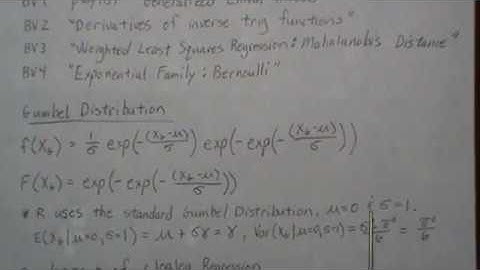 BV1
BV2 "Derivatives of inverse trig functions"
BV3 "Weighted Least Squares Regression & Mahalanobis Distance"
BV4 "Exponential Family: Bernoulli"
Gumbel Distribution
f(X_t) = 1/σ exp(-(X_t-μ)/σ) exp(-exp(-(X_t-μ)/σ))
F(X_t) = exp(-exp(-(X_t-μ)/σ))
* R uses the standard Gumbel Distribution, μ=0 & σ=1.
E(X_t|μ=0,σ=1) = μ + σγ = γ, Var(X_t|μ=0,σ=1) = π²/6 = π²/6